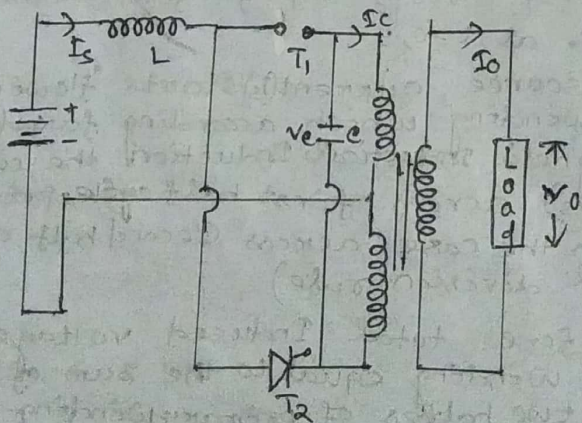 Is
L
T1
Ic
Io
+
-
Vc
C
Load
V0
T2